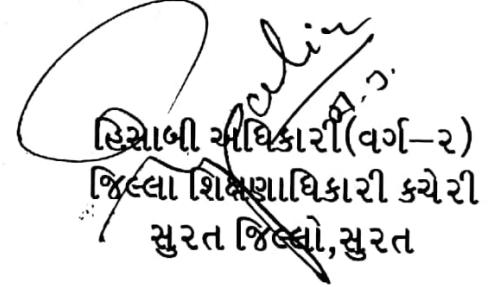 હિસાબી અધિકારી(વર્ગ–૨)
જિલ્લા શિક્ષણાધિકારી કચેરી
સુરત જિલ્લો,સુરત